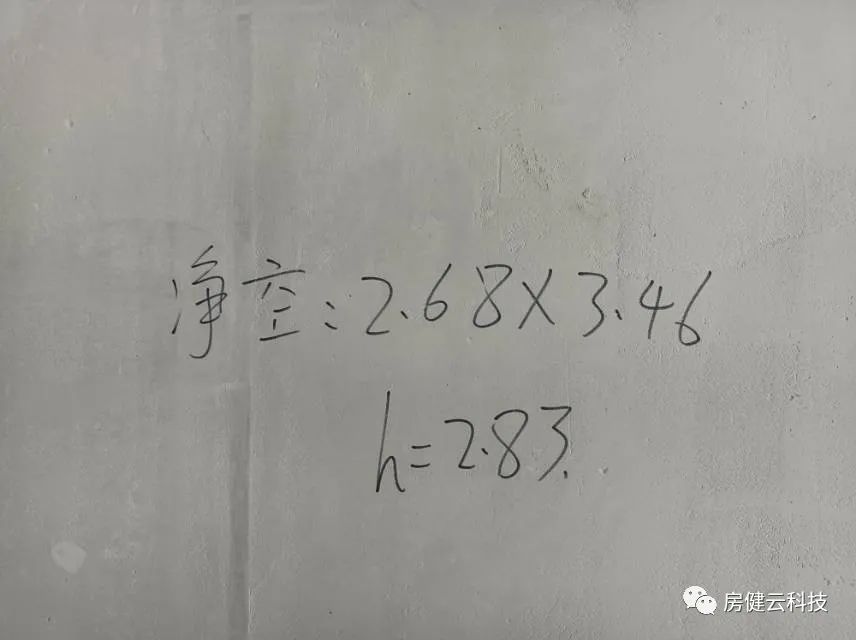 净空:2.68×3.46
h=2.83.
房健云科技